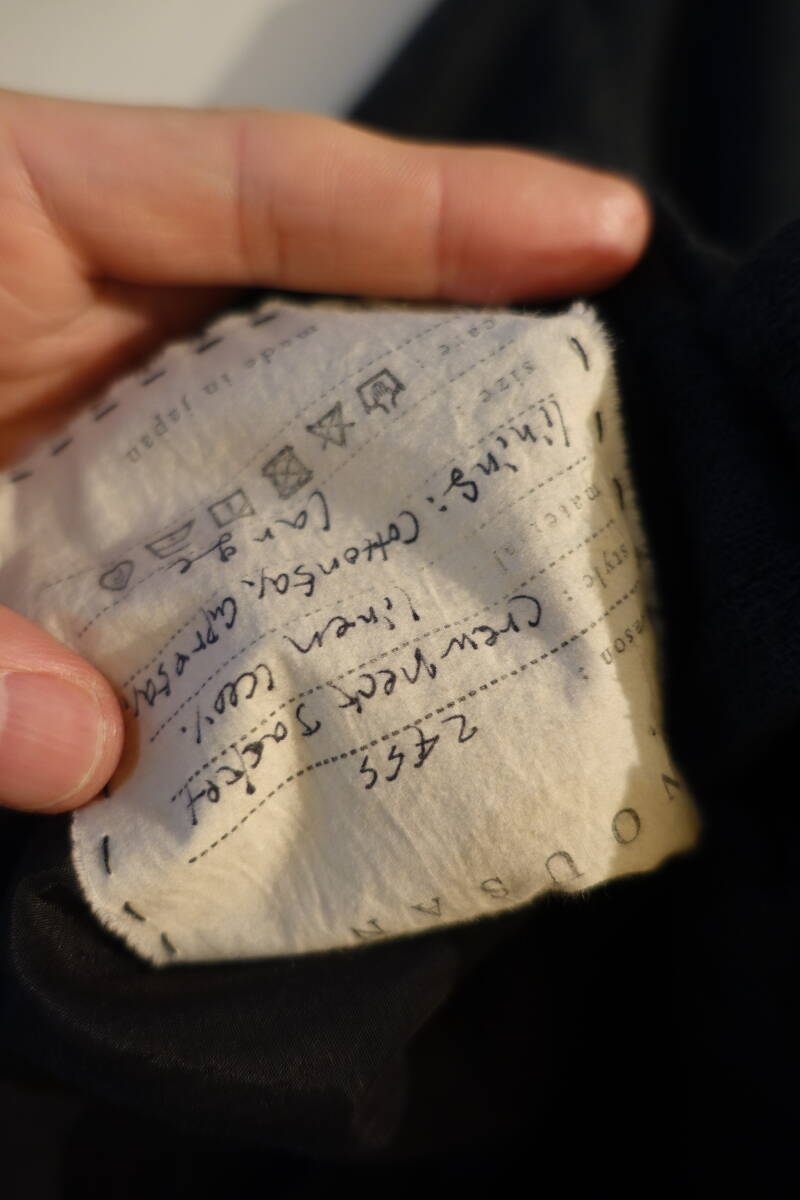 N O U S A N
ason : 24SS
style : Crew neck Jacket
material linen 100%
lining: Cotton 59%, Cupro 50%
size large
care :
made in japan